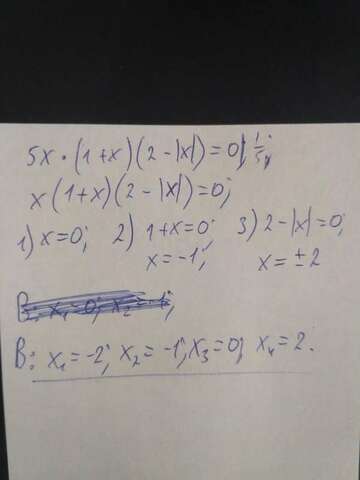 5x · (1+x)(2-|x|)=0 |· 1/5;
x(1+x)(2-|x|)=0;
1) x=0; 2) 1+x=0; 3) 2-|x|=0;
x=-1; x=±2
В: x₁=0; x₂=-1;
В: x₁=-2; x₂=-1; x₃=0; x₄=2.